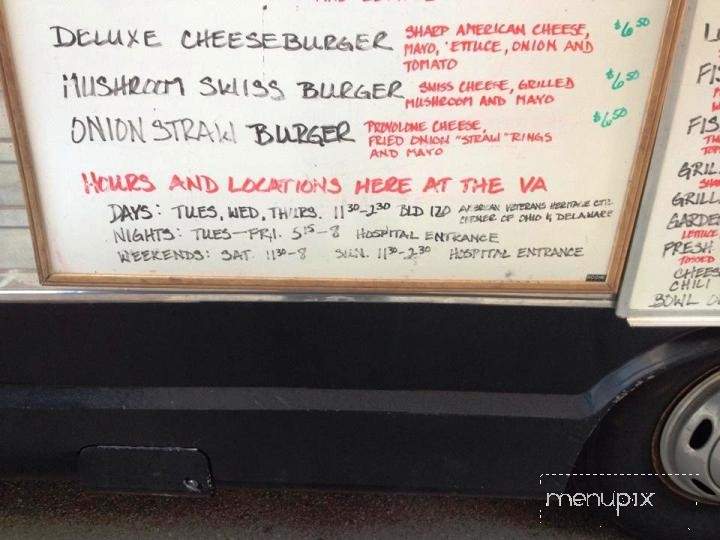 DELUXE CHEESEBURGER SHARP AMERICAN CHEESE, $6.50
MAYO, ETTUCE, ONION AND
TOMATO
MUSHROOM SWISS BURGER SWISS CHEESE, GRILLED $6.50
MUSHROOM AND MAYO
ONION STRAW BURGER PROVOLONE CHEESE, $6.50
FRIED ONION "STRAW" RINGS
AND MAYO
HOURS AND LOCATIONS HERE AT THE VA
DAYS: TUES, WED, THURS. 11 30-2 30 BLD 120
CORNER OF OHIO & DELAWARE
NIGHTS: TUES-FRI. 5 15-8 HOSPITAL ENTRANCE
WEEKENDS: SAT. 11 30-8 SUN. 11 30-2 30 HOSPITAL ENTRANCE
FIS
GRIL
GRILL
GARDE
LETTUCE
FRESH
TOSSED
CHEES
CHILI
BOWL O
menupix